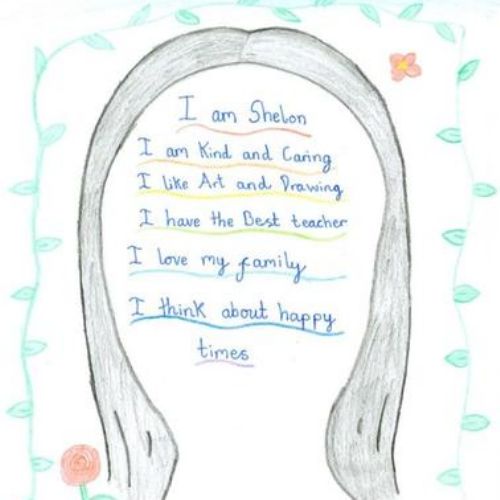 I am Shelon
I am Kind and Caring
I like Art and Drawing
I have the Best teacher
I love my family
I think about happy
times